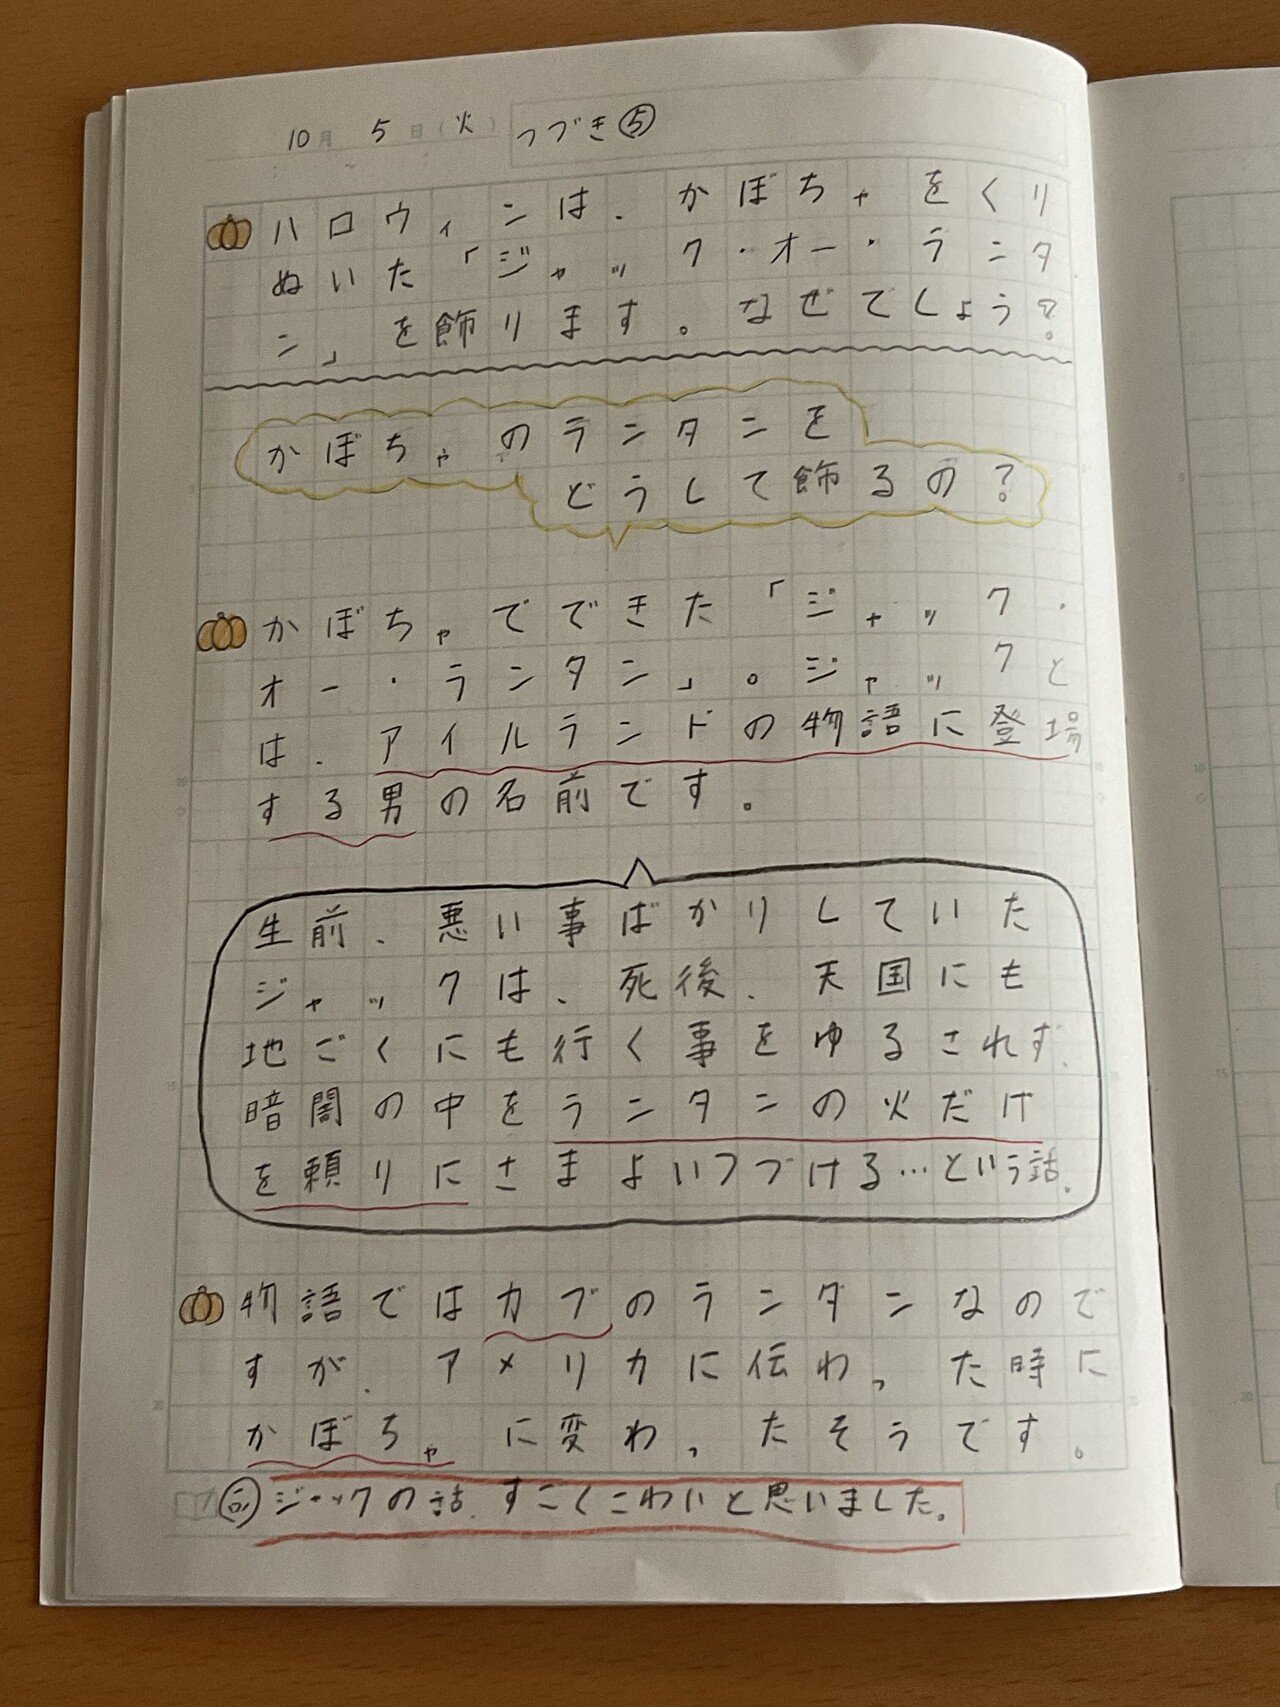 10月 5日(火) つづき⑤
ハロウィンは、かぼちゃをくり
ぬいた「ジャック・オー・ランタ
ン」を飾ります。なぜでしょう?
かぼちゃのランタンを
どうして飾るの?
かぼちゃでできた「ジャック・
オー・ランタン」。ジャックと
は、アイルランドの物語に登場
する男の名前です。
生前、悪い事ばかりしていた
ジャックは、死後、天国にも
地ごくにも行く事をゆるされず、
暗闇の中をランタンの火だけ
を頼りにさまよいつづける…という話。
物語ではカブのランタンなので
すが、アメリカに伝わった時に
かぼちゃに変わったそうです。
ジャックの話、すごくこわいと思いました。